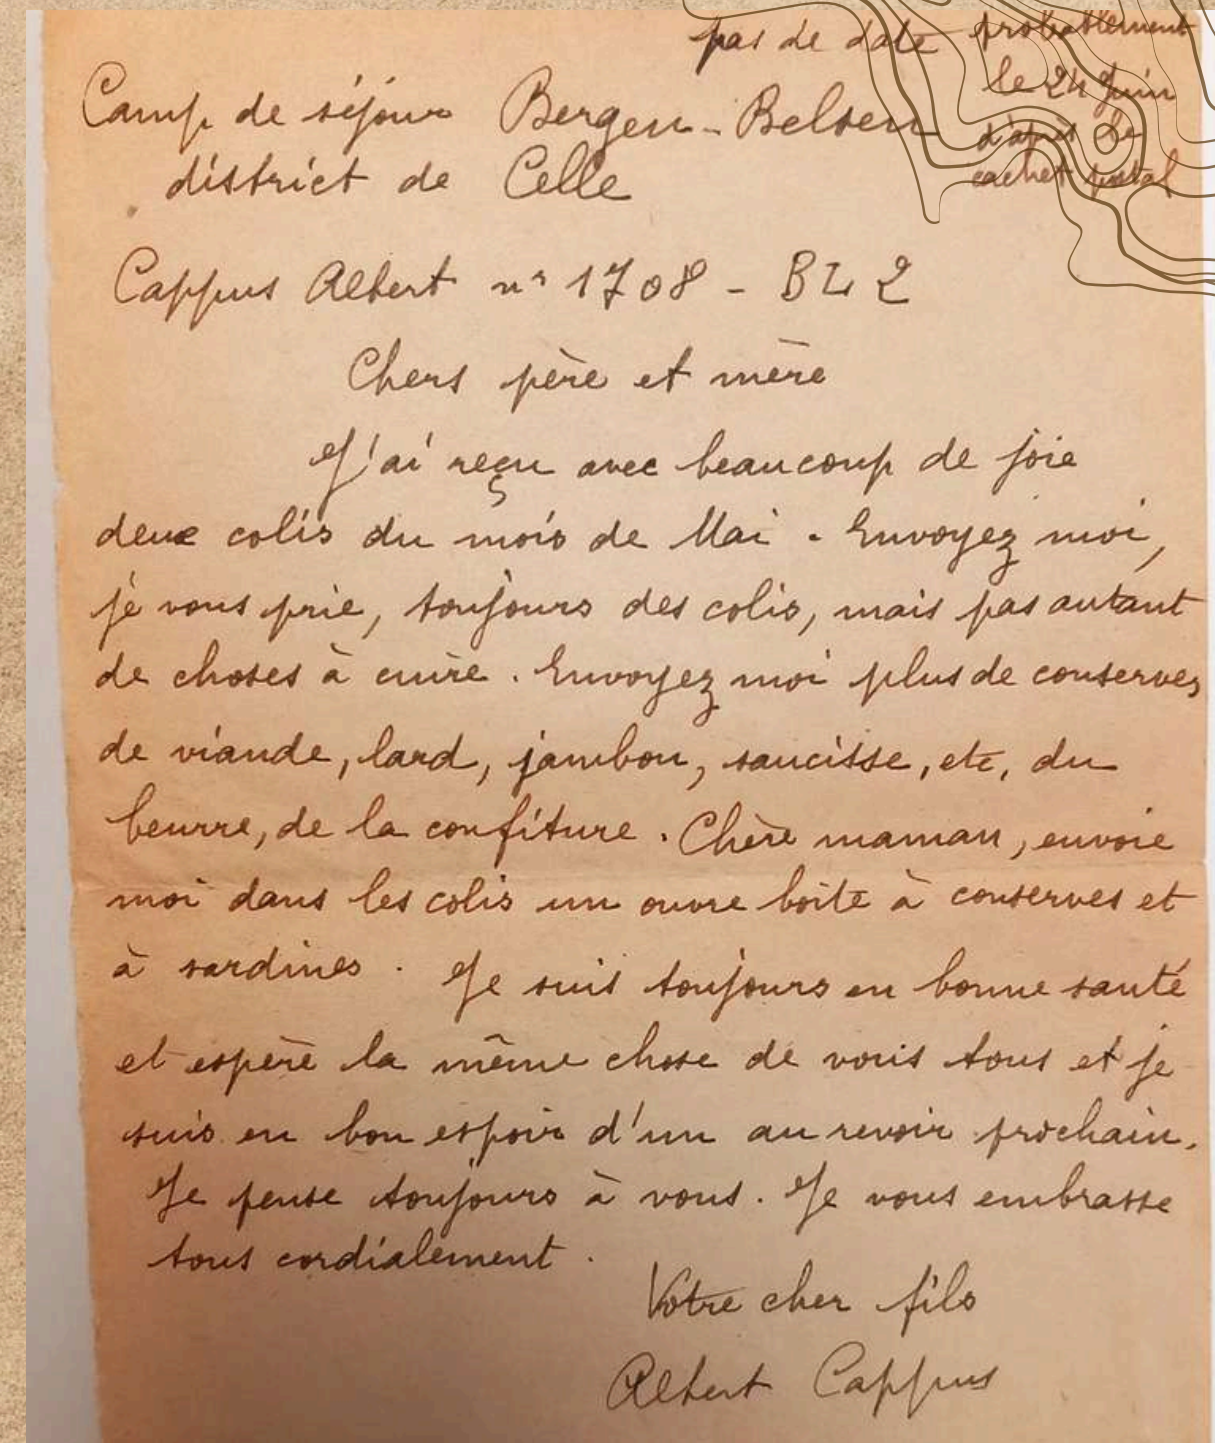 pas de date probablement
le 24 Juin
d'après le
cachet postal
Camp de séjour Bergen-Belsen
district de Celle
Cappus Albert n° 1708 - BL 2
Chers père et mère
J'ai reçu avec beaucoup de joie
deux colis du mois de Mai. Envoyez moi,
je vous prie, toujours des colis, mais pas autant
de choses à cuire. Envoyez moi plus de conserves
de viande, lard, jambon, saucisse, etc, du
beurre, de la confiture. Chère maman, envoie
moi dans les colis un ouvre boîte à conserves et
à sardines. Je suis toujours en bonne santé
et espère la même chose de vous tous et je
suis en bon espoir d'un au revoir prochain.
Je pense toujours à vous. Je vous embrasse
tous cordialement.
Votre cher fils
Albert Cappus